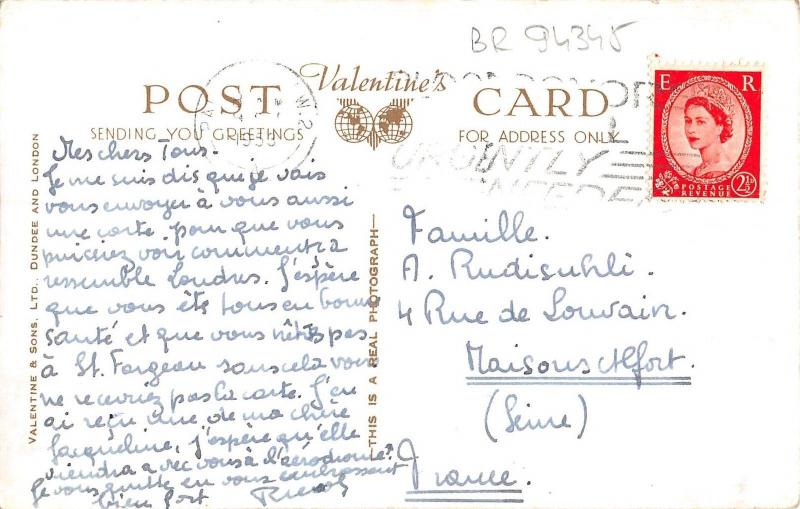 BR 94345
Valentine's
POST CARD
SENDING YOU GREETINGS
FOR ADDRESS ONLY
E R
POSTAGE
REVENUE
2½D
URGENTLY
NEEDED
VALENTINE & SONS, LTD., DUNDEE AND LONDON
THIS IS A REAL PHOTOGRAPH
Mes chers Tous.
Je me suis dis que je vais
vous envoyer à vous aussi
une carte. pour que vous
puissiez voir comment ça
ressemble Londres. J'espère
que vous êts tous en bonne
santé et que vous n'êtes pas
à St. Fargeau sans cela vous
ne recevriez pas la carte. J'en
ai reçu une de ma chère
Jacqueline, j'espère qu'elle
viendra avec vous à l'aérodrome?
Je vous quitte en vous embrassant
bien fort
Famille.
A. Rudisuhli.
4 Rue de Louvain.
Maisons Alfort.
(Seine)
France.